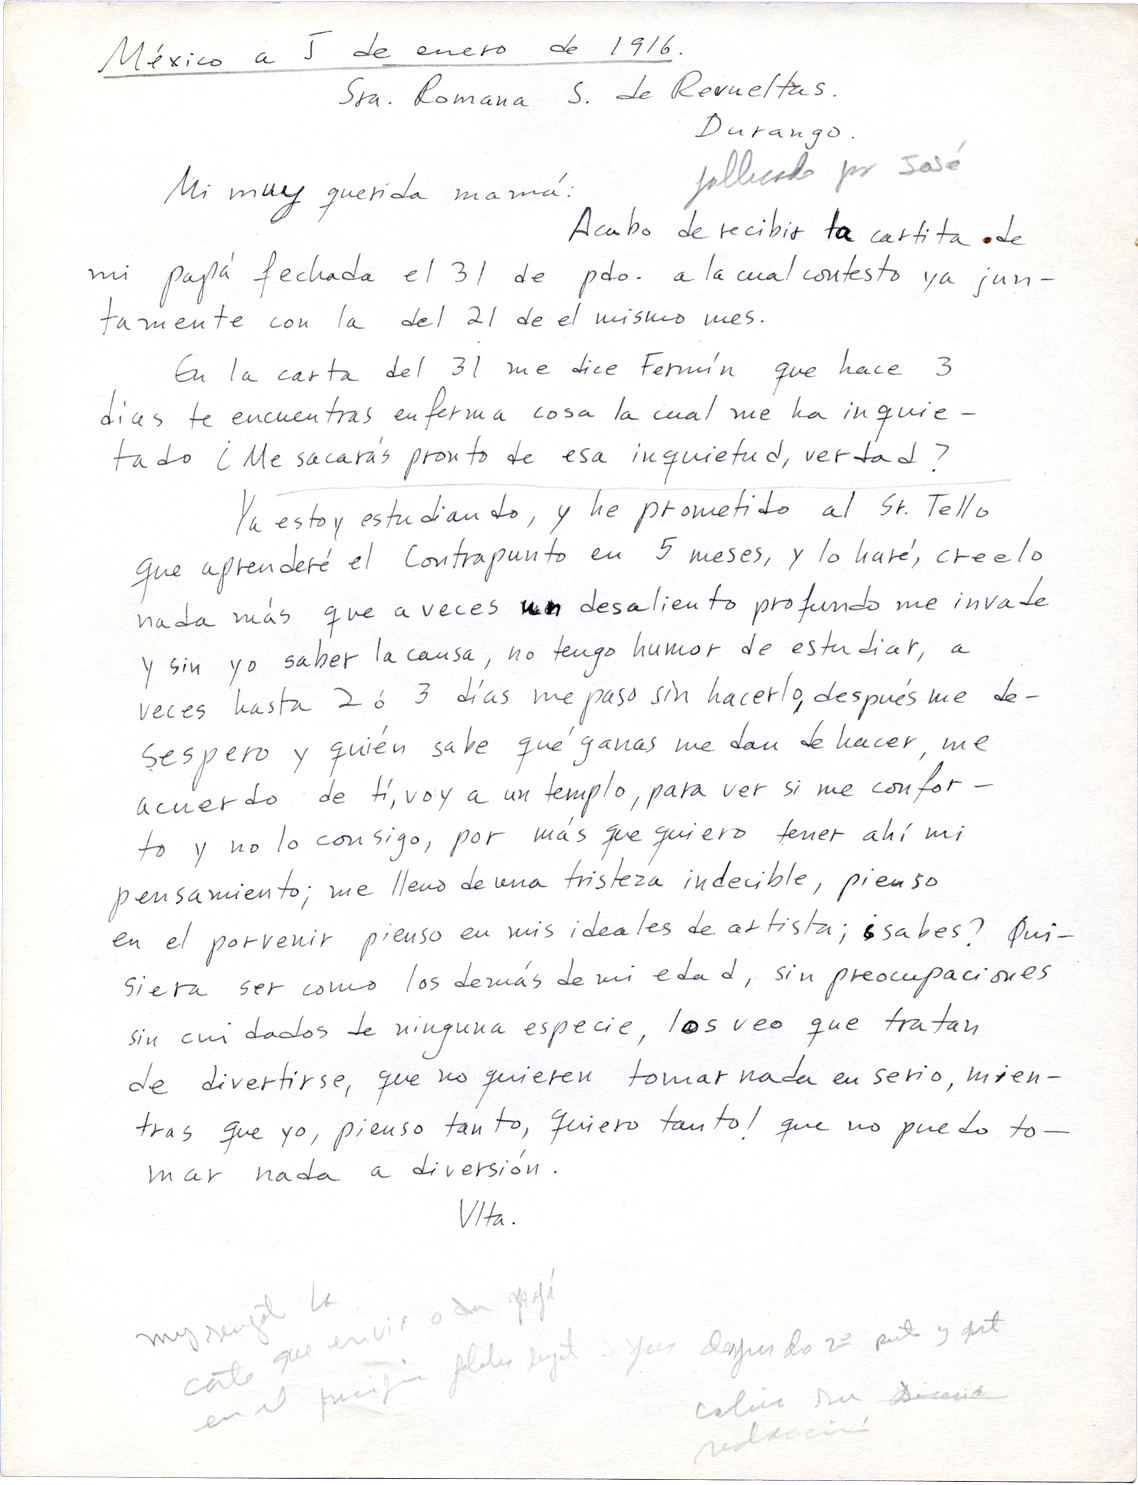 México a 5 de enero de 1916.
Sra. Romana S. de Revueltas.
Durango.
publicada por José
Mi muy querida mamá:
Acabo de recibir la cartita de
mi papá fechada el 31 de pdo. a la cual contesto ya jun-
tamente con la del 21 de el mismo mes.
En la carta del 31 me dice Fermín que hace 3
días te encuentras enferma cosa la cual me ha inquie-
tado ¿Me sacarás pronto de esa inquietud, verdad?
Ya estoy estudiando, y he prometido al Sr. Tello
que aprenderé el Contrapunto en 5 meses, y lo haré, creelo
nada más que a veces un desaliento profundo me invade
y sin yo saber la causa, no tengo humor de estudiar, a
veces hasta 2 ó 3 días me paso sin hacerlo, después me de-
sespero y quién sabe qué ganas me dan de hacer, me
acuerdo de tí, voy a un templo, para ver si me confor-
to y no lo consigo, por más que quiero tener ahí mi
pensamiento; me lleno de una tristeza indecible, pienso
en el porvenir pienso en mis ideales de artista; ¿sabes? Qui-
siera ser como los demás de mi edad, sin preocupaciones
sin cuidados de ninguna especie, los veo que tratan
de divertirse, que no quieren tomar nada en serio, mien-
tras que yo, pienso tanto, quiero tanto! que no puedo to-
mar nada a diversión.
Vlta.
muy la
carta que envió a su papá
en el
y
su
redacción